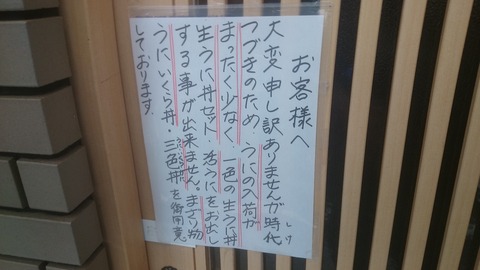 お客様へ
大変申し訳ありませんが時化
しけ
つづきのため、うにの入荷が
まったく少なく、一色の生うに丼
生うに丼セット・活うにをお出し
する事が出来ません。まざり物
うにいくら丼・三色丼を御用意
しております.